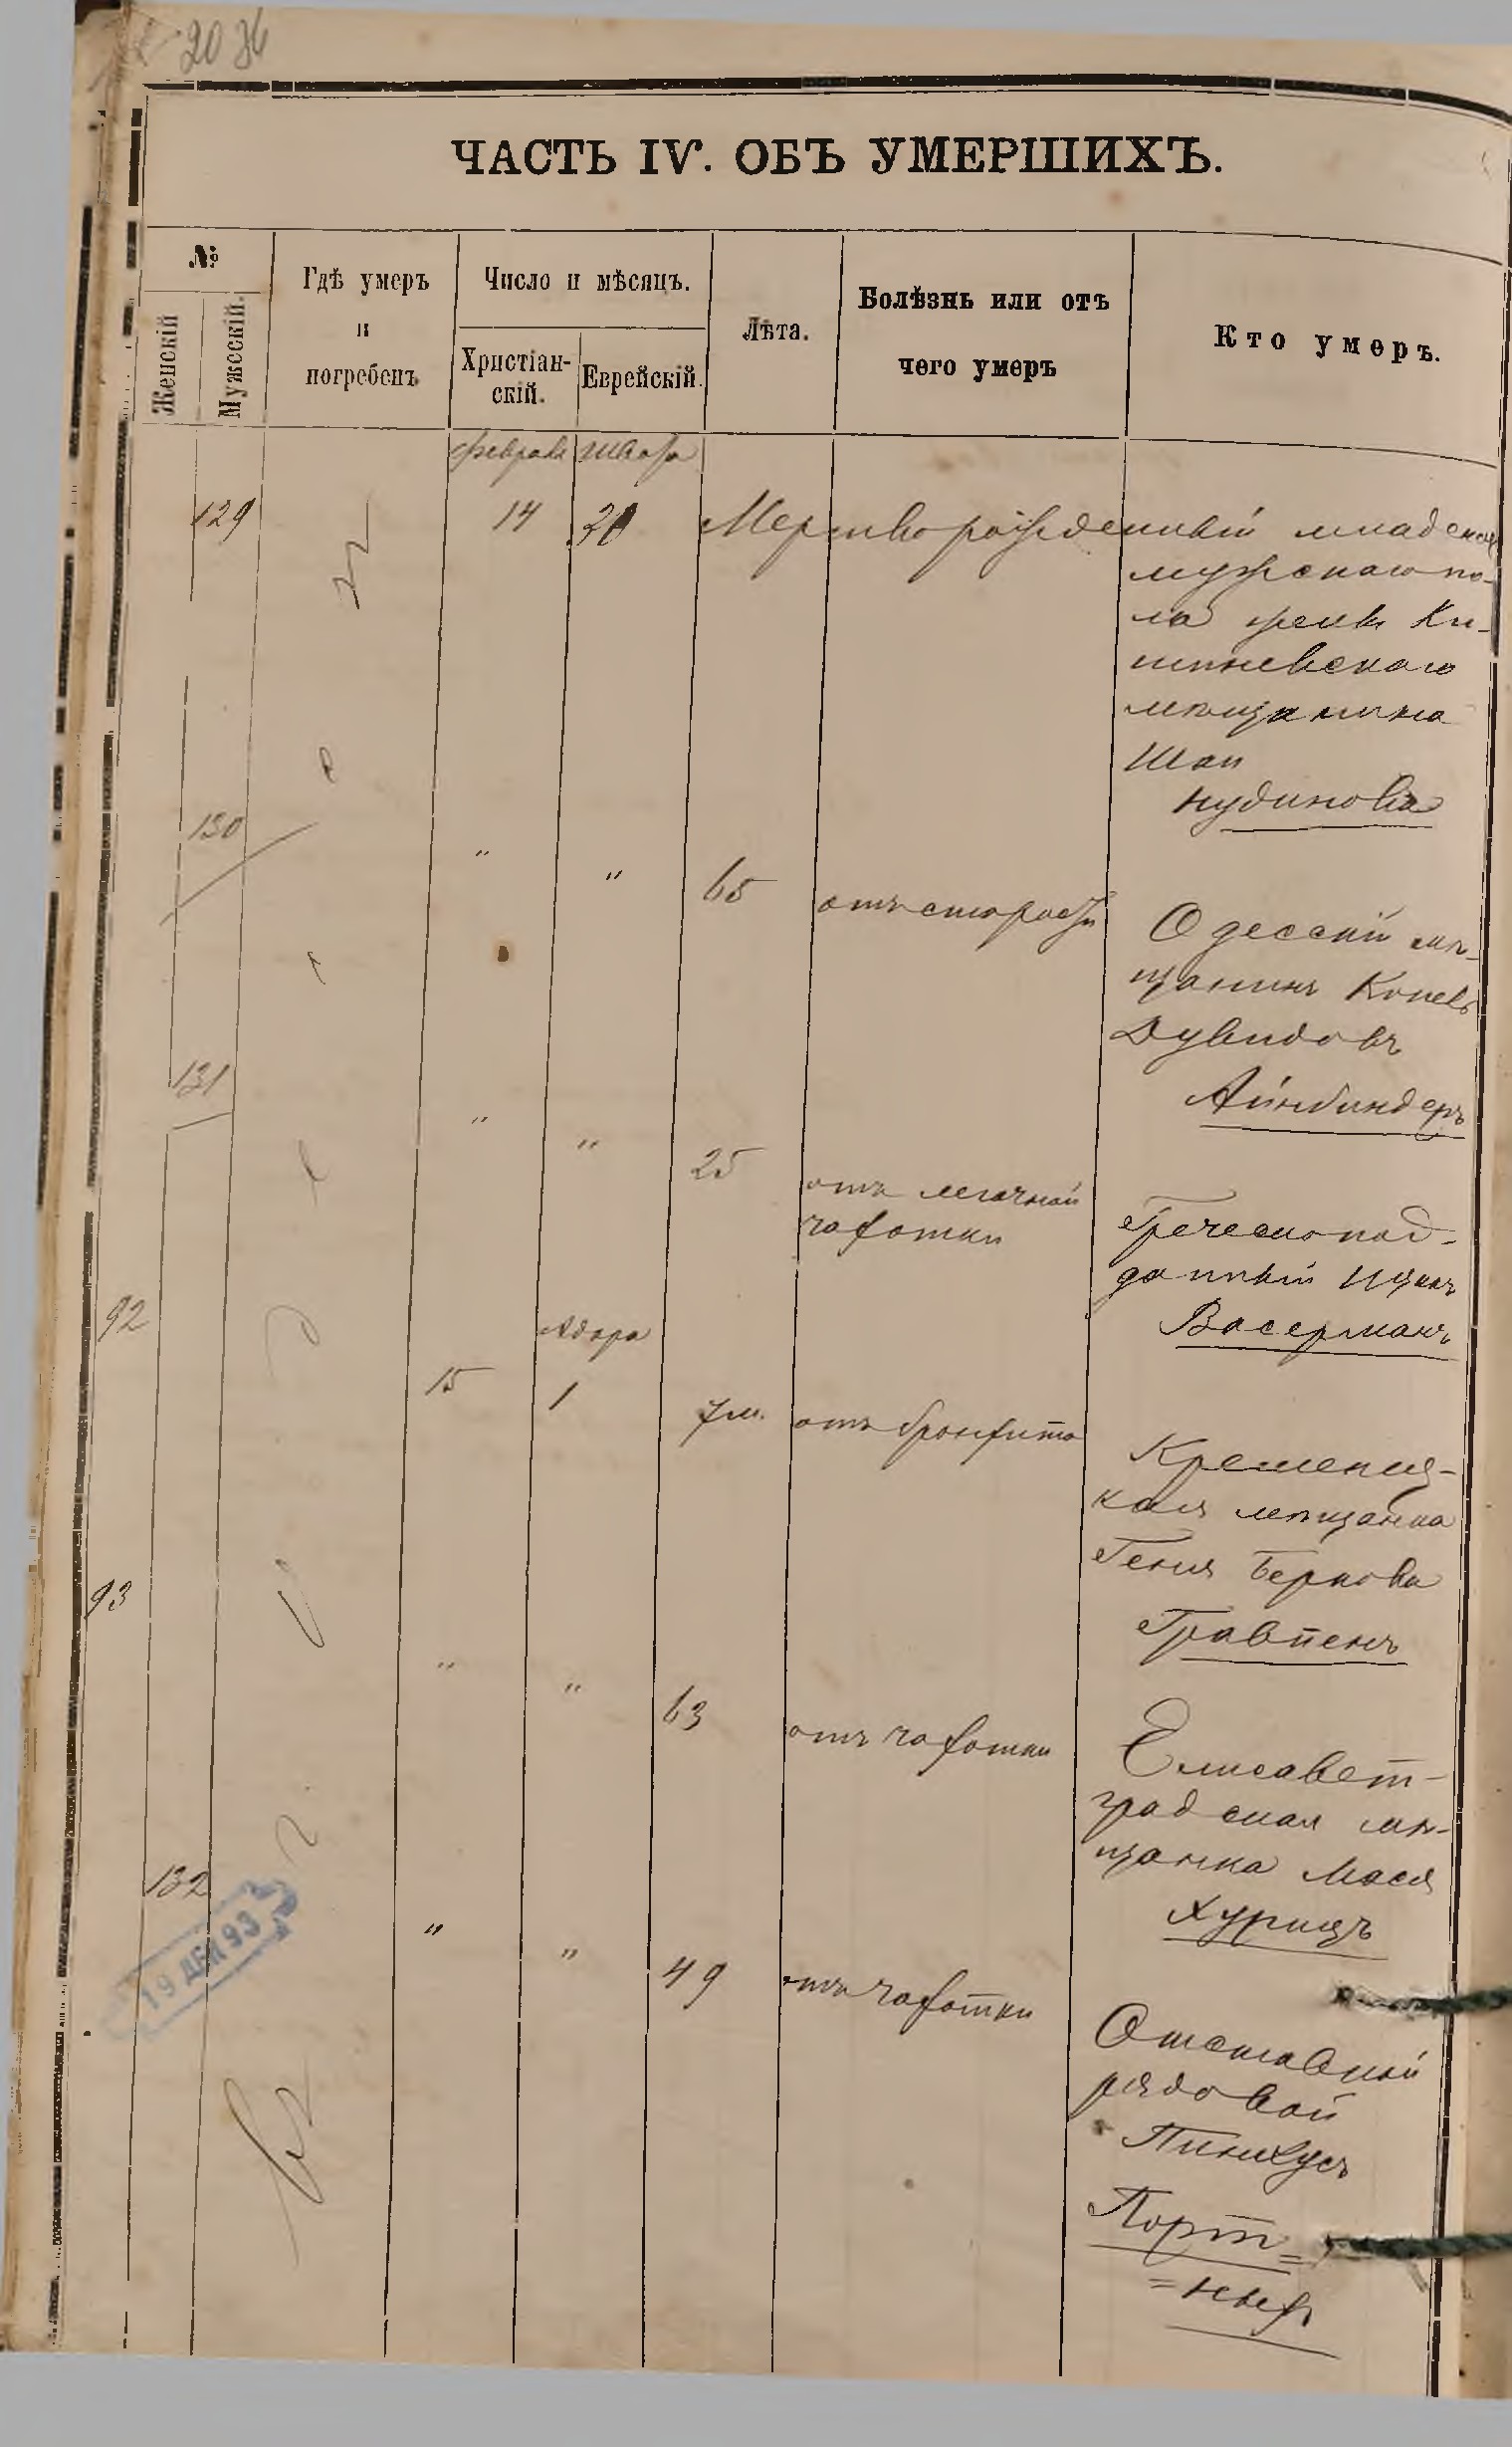 2036
ЧАСТЬ IV. ОБЪ УМЕРШИХЪ.
№
Женскій
Мужескій.
Гдѣ умеръ
и
погребенъ
Число и мѣсяцъ.
Христіан-
скій.
Еврейскій.
Лѣта.
Болѣзнь или отъ
чего умеръ
Кто умеръ.
февраля Швата
129
14
30
Мертворожденный младенец
мужскаго по-
ла
Ки-
шиневскаго
мѣщанина
Шаи
Нудинова
130
"
"
65
отъ старости
Одесскій мѣ-
щанинъ Копель
Дувидовъ
Айнбиндеръ
131
"
"
25
отъ легочной
чахотки
Греческопод-
данный Ицко
Васерманъ
92
Адара
15
1
7 м.
отъ бронхита
Кременец-
кая мѣщанка
Геня Беркова
Гравпенъ
93
"
"
63
отъ чахотки
Елисавет-
градская мѣ-
щанка Мася
Хурицъ
132
19 ДЕК 93
"
"
49
отъ чахотки
Отставной
рядовой
Пинхусъ
Порт=
=ной